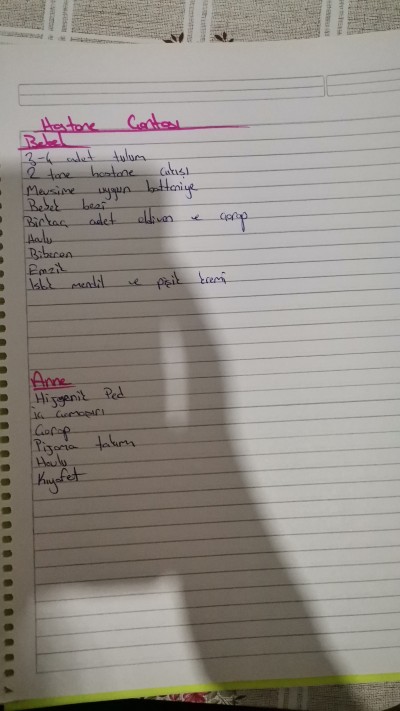 Hastane Çantası
Bebek
3-4 adet tulum
2 tane hastane çıkışı
Mevsime uygun battaniye
Bebek bezi
Birkaç adet eldiven ve çorap
Havlu
Biberon
Emzik
Islak mendil ve pişik kremi
Anne
Hijyenik Ped
iç çamaşırı
Çorap
Pijama takımı
Havlu
Kıyafet